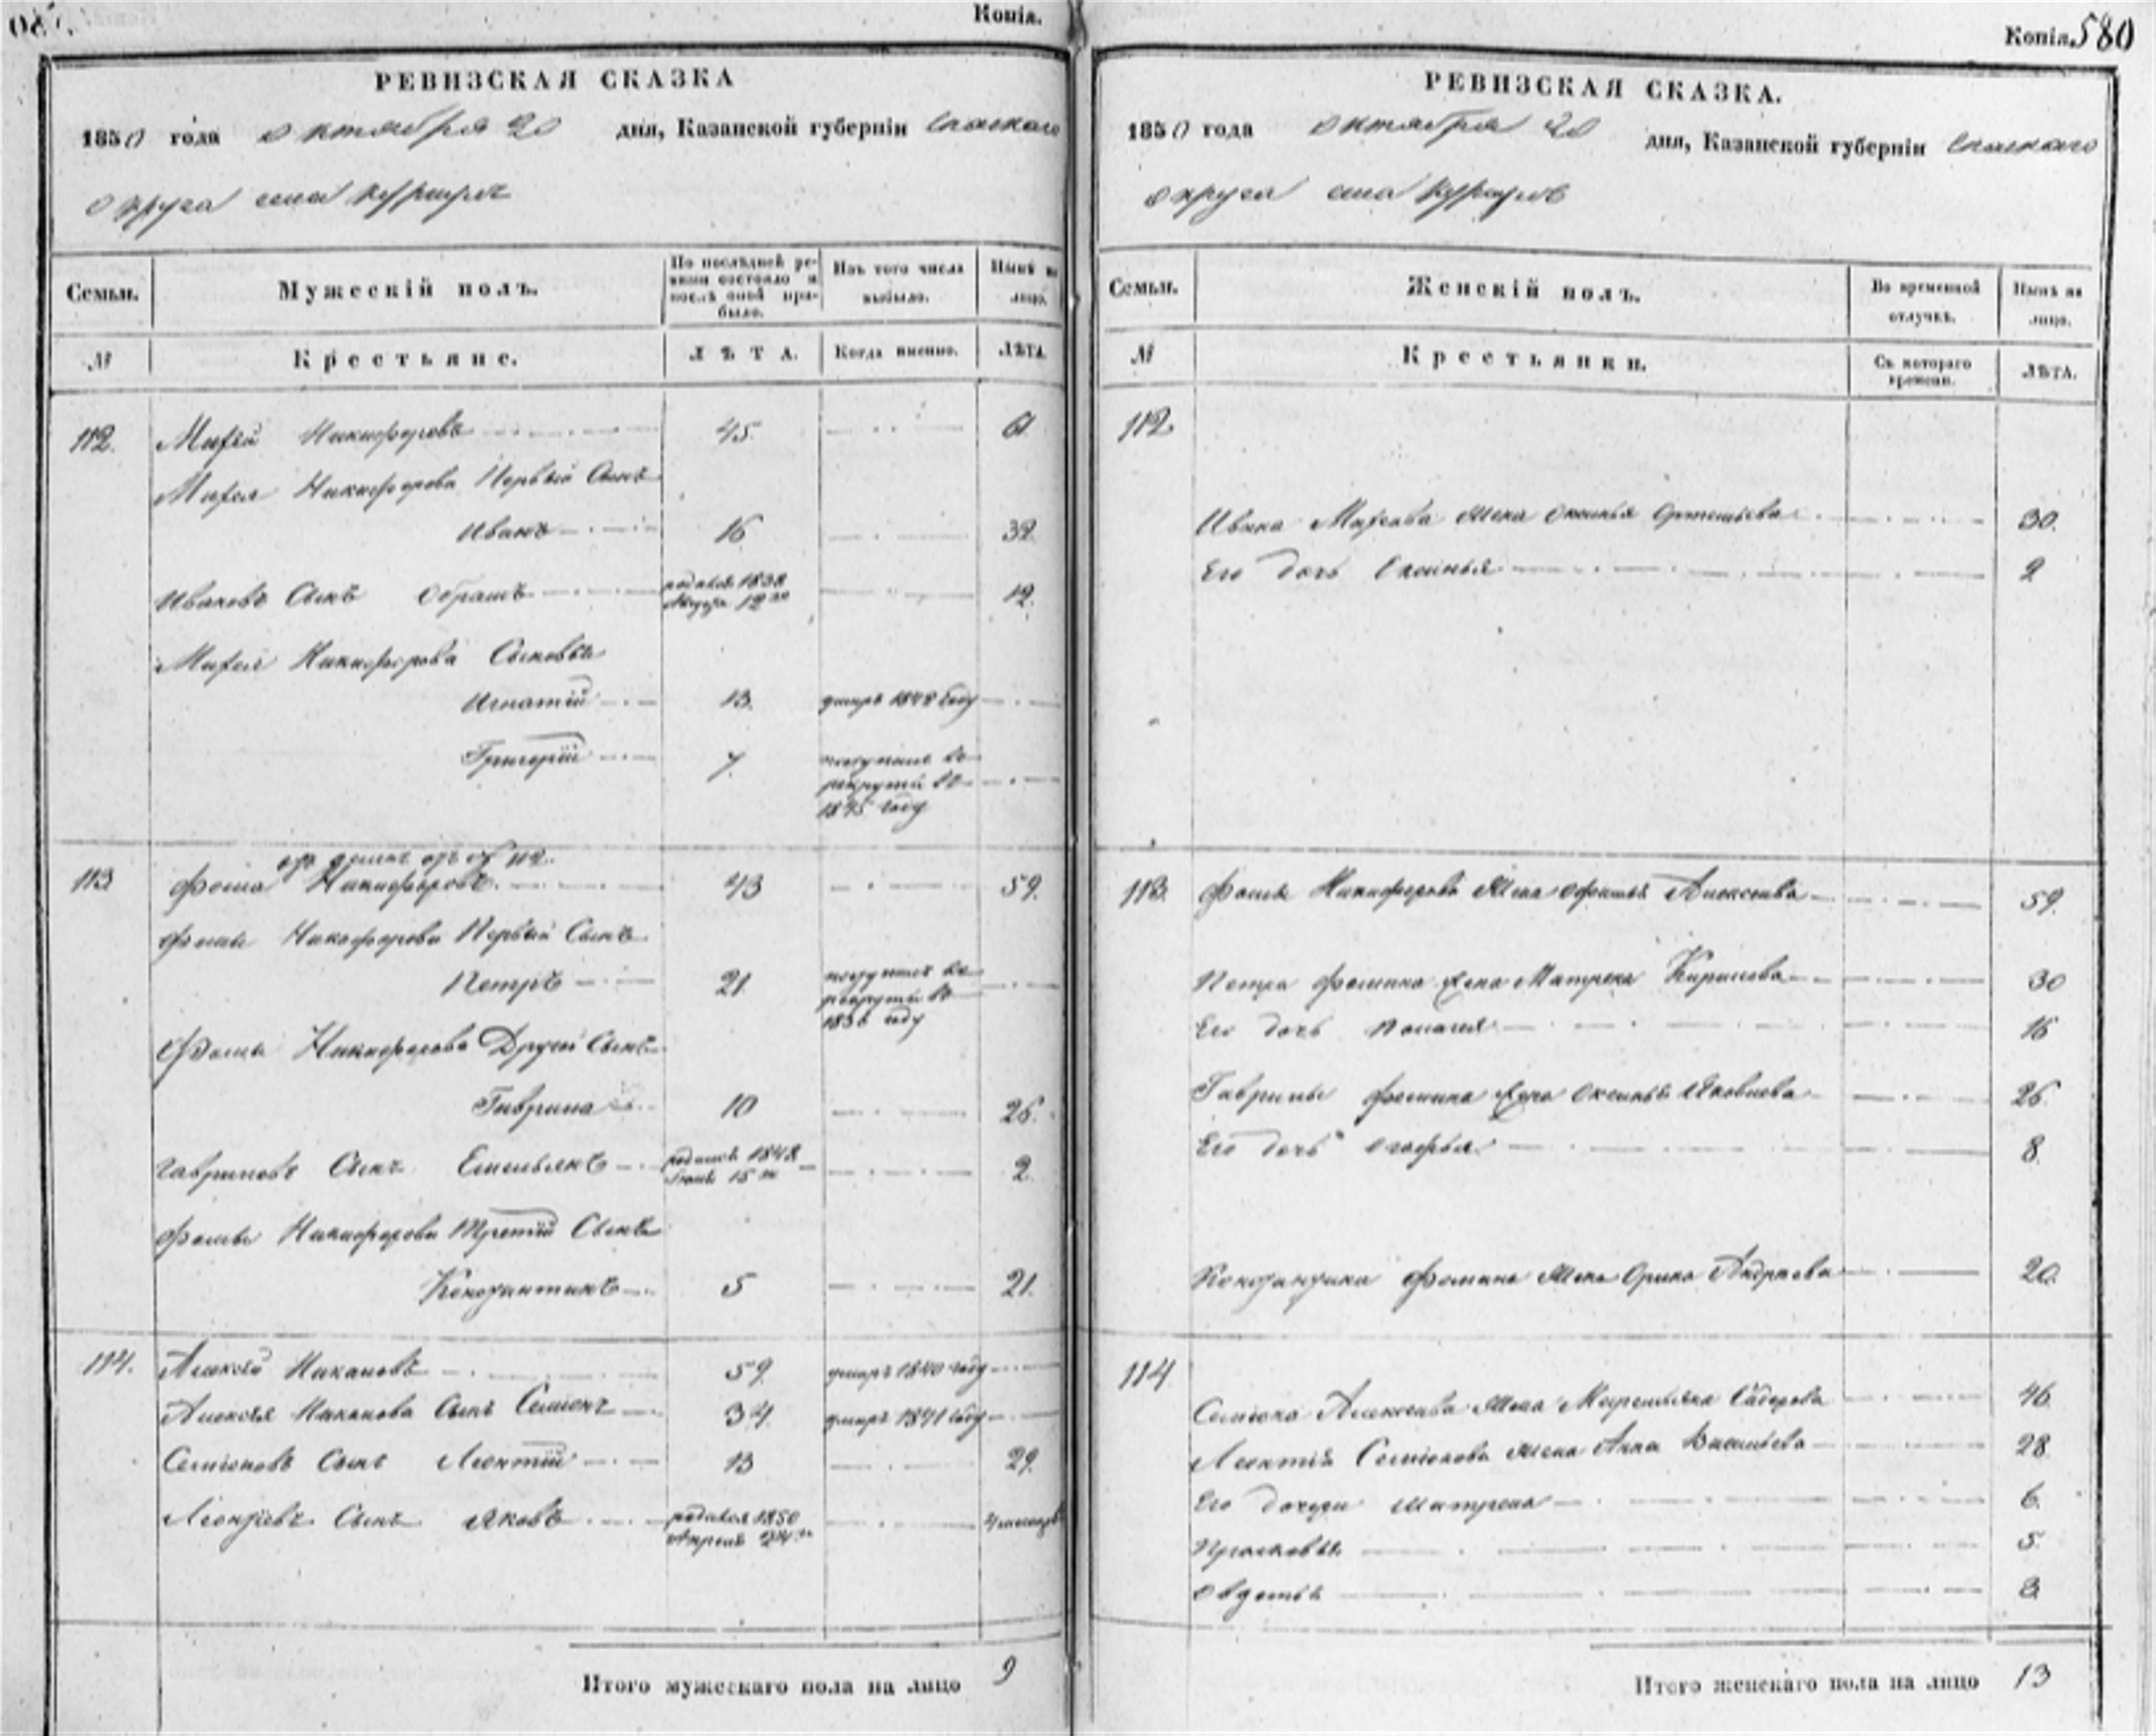 Копія.
РЕВИЗСКАЯ СКАЗКА
1850 года октября 20 дня, Казанской губерніи Спаскаго
округа села
Семьи.
Мужескій полъ.
По послѣдней ревизіи состояло и послѣ оной прибыло.
Изъ того числа выбыло.
Нынѣ на лицо.
№
Крестьяне.
ЛѢТА.
Когда именно.
ЛѢТА.
112. Никифоровъ 45. 61
Никифорова Первый Сынъ
Иванъ 16 32.
Ивановъ Сынъ родился 1838 12.
Никифорова Сыновья
Игнатій 13. умеръ 1848 году
Григорій 7. поступилъ въ
рекруты въ
1845 году
113 Фома Никифоровъ. 43 59.
Фомы Никифорова Первый Сынъ
Петръ 21. поступилъ въ
рекруты въ
году
Фомы Никифорова Другой Сынъ
Гаврила 10 26.
Гавриловъ Сынъ Емельянъ родился 1848 2.
Фомы Никифорова Третій Сынъ
Константинъ 5 21.
114. Алексѣй 59. умеръ 1840 году
Алексѣя Сынъ Семенъ 34. умеръ 1841 году
Семеновъ Сынъ Леонтій 13 29.
Леонтіевъ Сынъ Яковъ родился 1850
Апреля 24
Итого мужескаго пола на лицо 9
Копія. 580
РЕВИЗСКАЯ СКАЗКА.
1850 года октября 20 дня, Казанской губерніи Спаскаго
округа села
Семьи.
Женскій полъ.
Во временной отлучкѣ.
Нынѣ на лицо.
№
Крестьянки.
Съ котораго времени.
ЛѢТА.
112
Ивана жена 30.
Его дочь 2
113. Фомы Никифорова жена Алексеева 59.
Петра Фомина жена Матрена Кирилова 30
Его дочь 16
Гаврилы Фомина жена Яковлева 26.
Его дочь 8.
Константина Фомина жена Орина Андреева 20.
114
Семена Алексеева жена 46.
Леонтія Семенова жена Анна Васильева 28.
Его дочери Матрена 6.
Прасковья 5.
Овдотья 3.
Итого женскаго пола на лицо 13